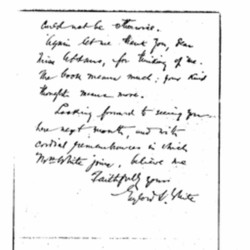 could not be otherwise.
Again let me thank you, dear
Miss Addams, for thinking of me.
The book means much; your kind
thought means more.
Looking forward to seeing you
here next month, and with
cordial remembrances in which
Mrs White joins, believe me
Faithfully yours
White